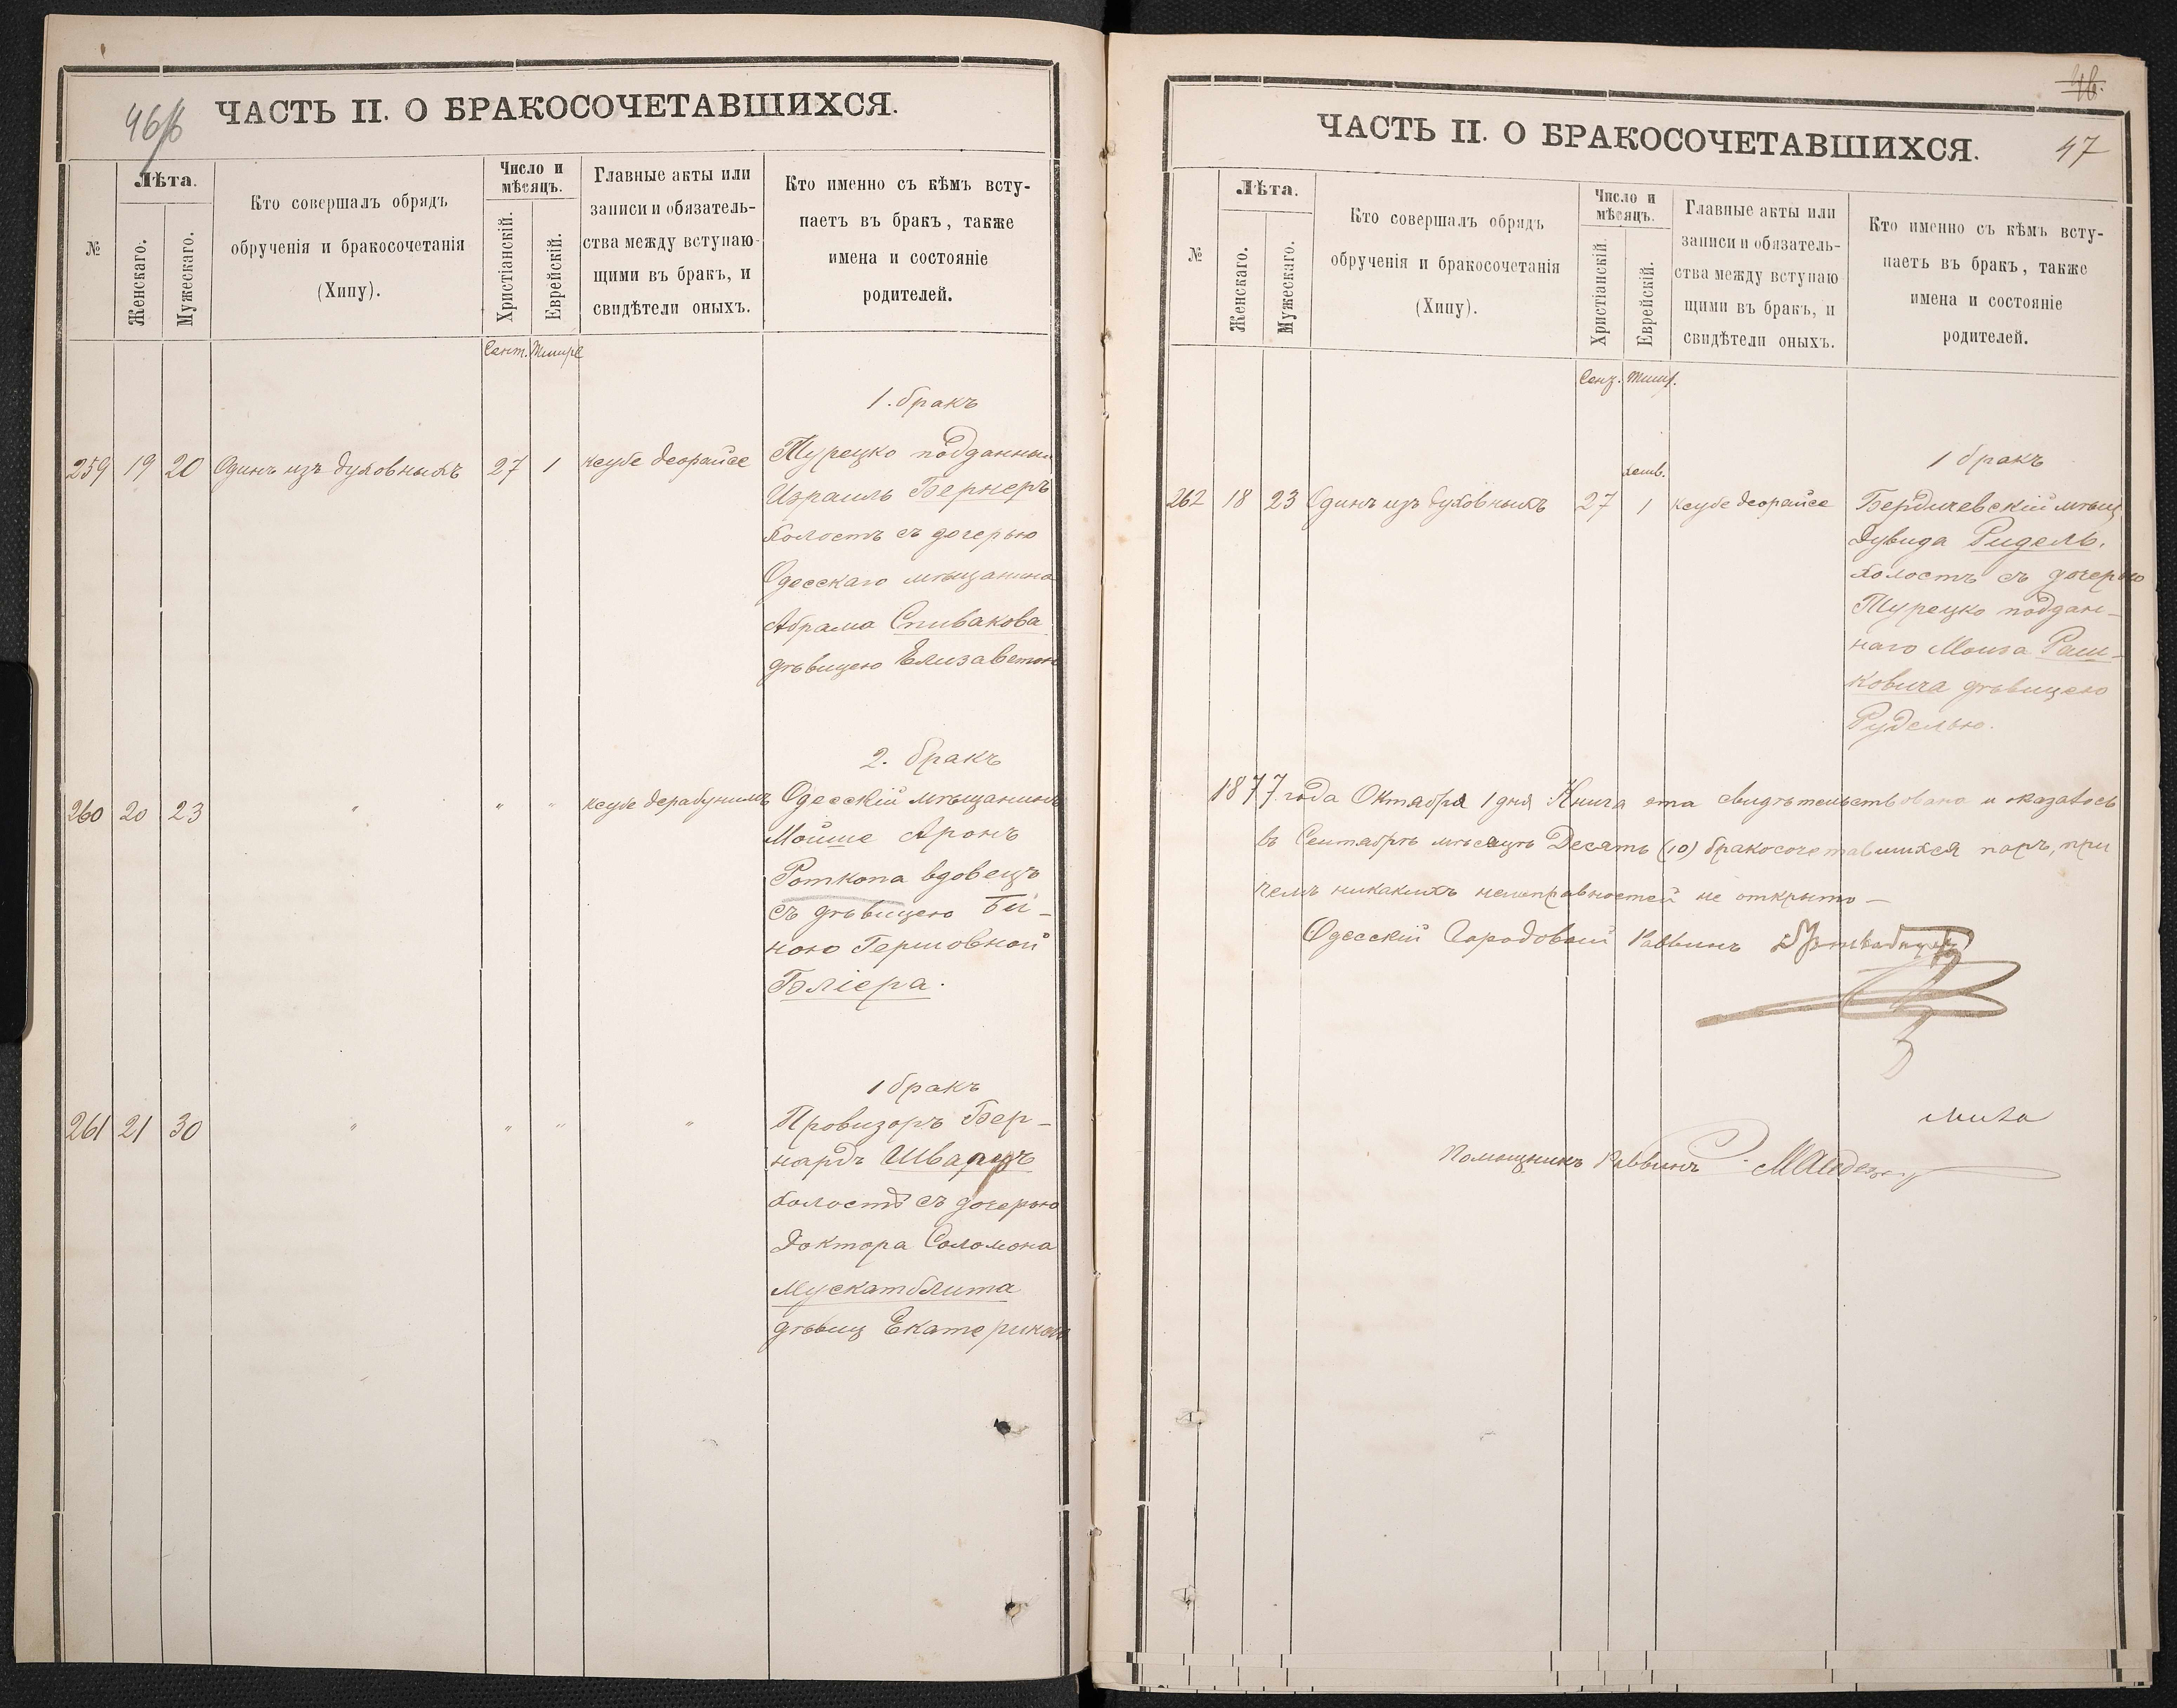 46
ЧАСТЬ II. О БРАКОСОЧЕТАВШИХСЯ.
№
Лѣта.
Женскаго.
Мужескаго.
Кто совершалъ обрядъ
обрученія и бракосочетанія
(Хипу).
Число и
мѣсяцъ.
Христіанскій.
Еврейскій.
Главные акты или
записи и обязатель-
ства между вступаю-
щими въ бракъ, и
свидѣтели оныхъ.
Кто именно съ кѣмъ всту-
паетъ въ бракъ, также
имена и состояніе
родителей.
Сент. Тишре
1. бракъ
259 19 20 Одинъ изъ духовныхъ 27 1 ксубе деорайсе Турецко подданный
Израиль Бернеръ
холостъ съ дочерью
Одесскаго мѣщанина
Абрама Спивакова
дѣвицею Елизаветою
2. бракъ
260 20 23 " " " ксубе дерабунимъ Одесскій мѣщанинъ
Мойше Аронъ
Роткопа вдовецъ
съ дѣвицею Бей-
ною Гершовной
Бліера.
1 бракъ
261 21 30 " " " " Провизоръ Бер-
нардъ Шварцъ
холостъ съ дочерью
Доктора Соломона
Мускатблита
дѣвиц Екатериною
46.
47
ЧАСТЬ II. О БРАКОСОЧЕТАВШИХСЯ.
№
Лѣта.
Женскаго.
Мужескаго.
Кто совершалъ обрядъ
обрученія и бракосочетанія
(Хипу).
Число и
мѣсяцъ.
Христіанскій.
Еврейскій.
Главные акты или
записи и обязатель-
ства между вступаю
щими въ бракъ, и
свидѣтели оныхъ.
Кто именно съ кѣмъ всту-
паетъ въ бракъ, также
имена и состояніе
родителей.
Сент. Тишр.
1 бракъ
262 18 23 Одинъ изъ духовныхъ 27 1 ксубе деорайсе Бердичевскій мѣщ
Дувида Ридель.
холостъ съ дочерью
Турецко поддан-
наго Моиза Раш-
ковича дѣвицею
Руделью.
1877 года Октября 1 дня Книга эта свидѣтельствована и оказалось
въ Сентябрѣ мѣсяцѣ Десять (10) бракосочетавшихся паръ, при
чемъ никакихъ неисправностей не открыто —
Одесскій Городовой Раввинъ
Помощникъ Раввинъ